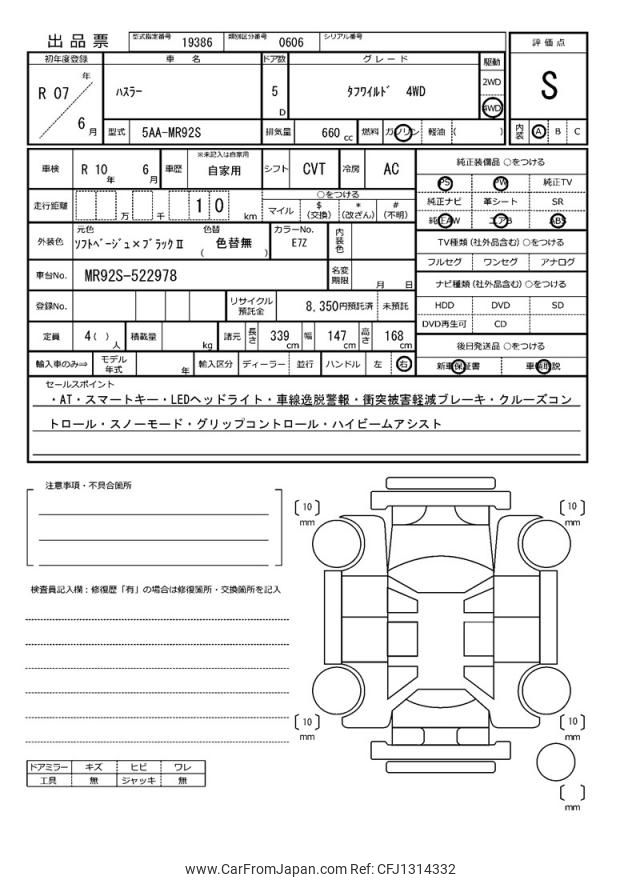 出品票 型式指定番号 19386 類別区分番号 0606 シリアル番号
評価点
S
初年度登録 車名 ドア数 グレード 駆動
R 07 年 6 月
ハスラー 5 D タフワイルド 4WD
2WD
4WD
型式 5AA-MR92S 排気量 660 cc 燃料 ガソリン 軽油 ( )
内装 A B C
車検 R 10 年 6 月 車歴 ※未記入は自家用 自家用 シフト CVT 冷房 AC
純正装備品 ○をつける
PS PW 純正TV
純正ナビ 革シート SR
純正AW エアB ABS
走行距離 万 千 1 0 km
○をつける
マイル $ (交換) * (改ざん) # (不明)
外装色 元色 ソフトベージュ×ブラックⅡ 色替 ( 色替無 ) カラーNo. E7Z 内装色
TV種類 (社外品含む) ○をつける
フルセグ ワンセグ アナログ
車台No. MR92S-522978 名変期限 月 日
ナビ種類 (社外品含む) ○をつける
HDD DVD SD
DVD再生可 CD
登録No. リサイクル預託金 8,350円預託済 未預託
定員 4( ) 人 積載量 kg 諸元 長さ 339 cm 幅 147 cm 高さ 168 cm
後日発送品 ○をつける
新車保証書 車輌取説
輸入車のみ⇒ モデル年式 年 輸入区分 ディーラー 並行 ハンドル 左 右
セールスポイント
・AT・スマートキー・LEDヘッドライト・車線逸脱警報・衝突被害軽減ブレーキ・クルーズコン
トロール・スノーモード・グリップコントロール・ハイビームアシスト
注意事項・不具合箇所
検査員記入欄：修復歴「有」の場合は修復箇所・交換箇所を記入
10 mm
10 mm
10 mm
10 mm
mm
ドアミラー キズ ヒビ ワレ
工具 無 ジャッキ 無
www.CarFromJapan.com Ref: CFJ1314332